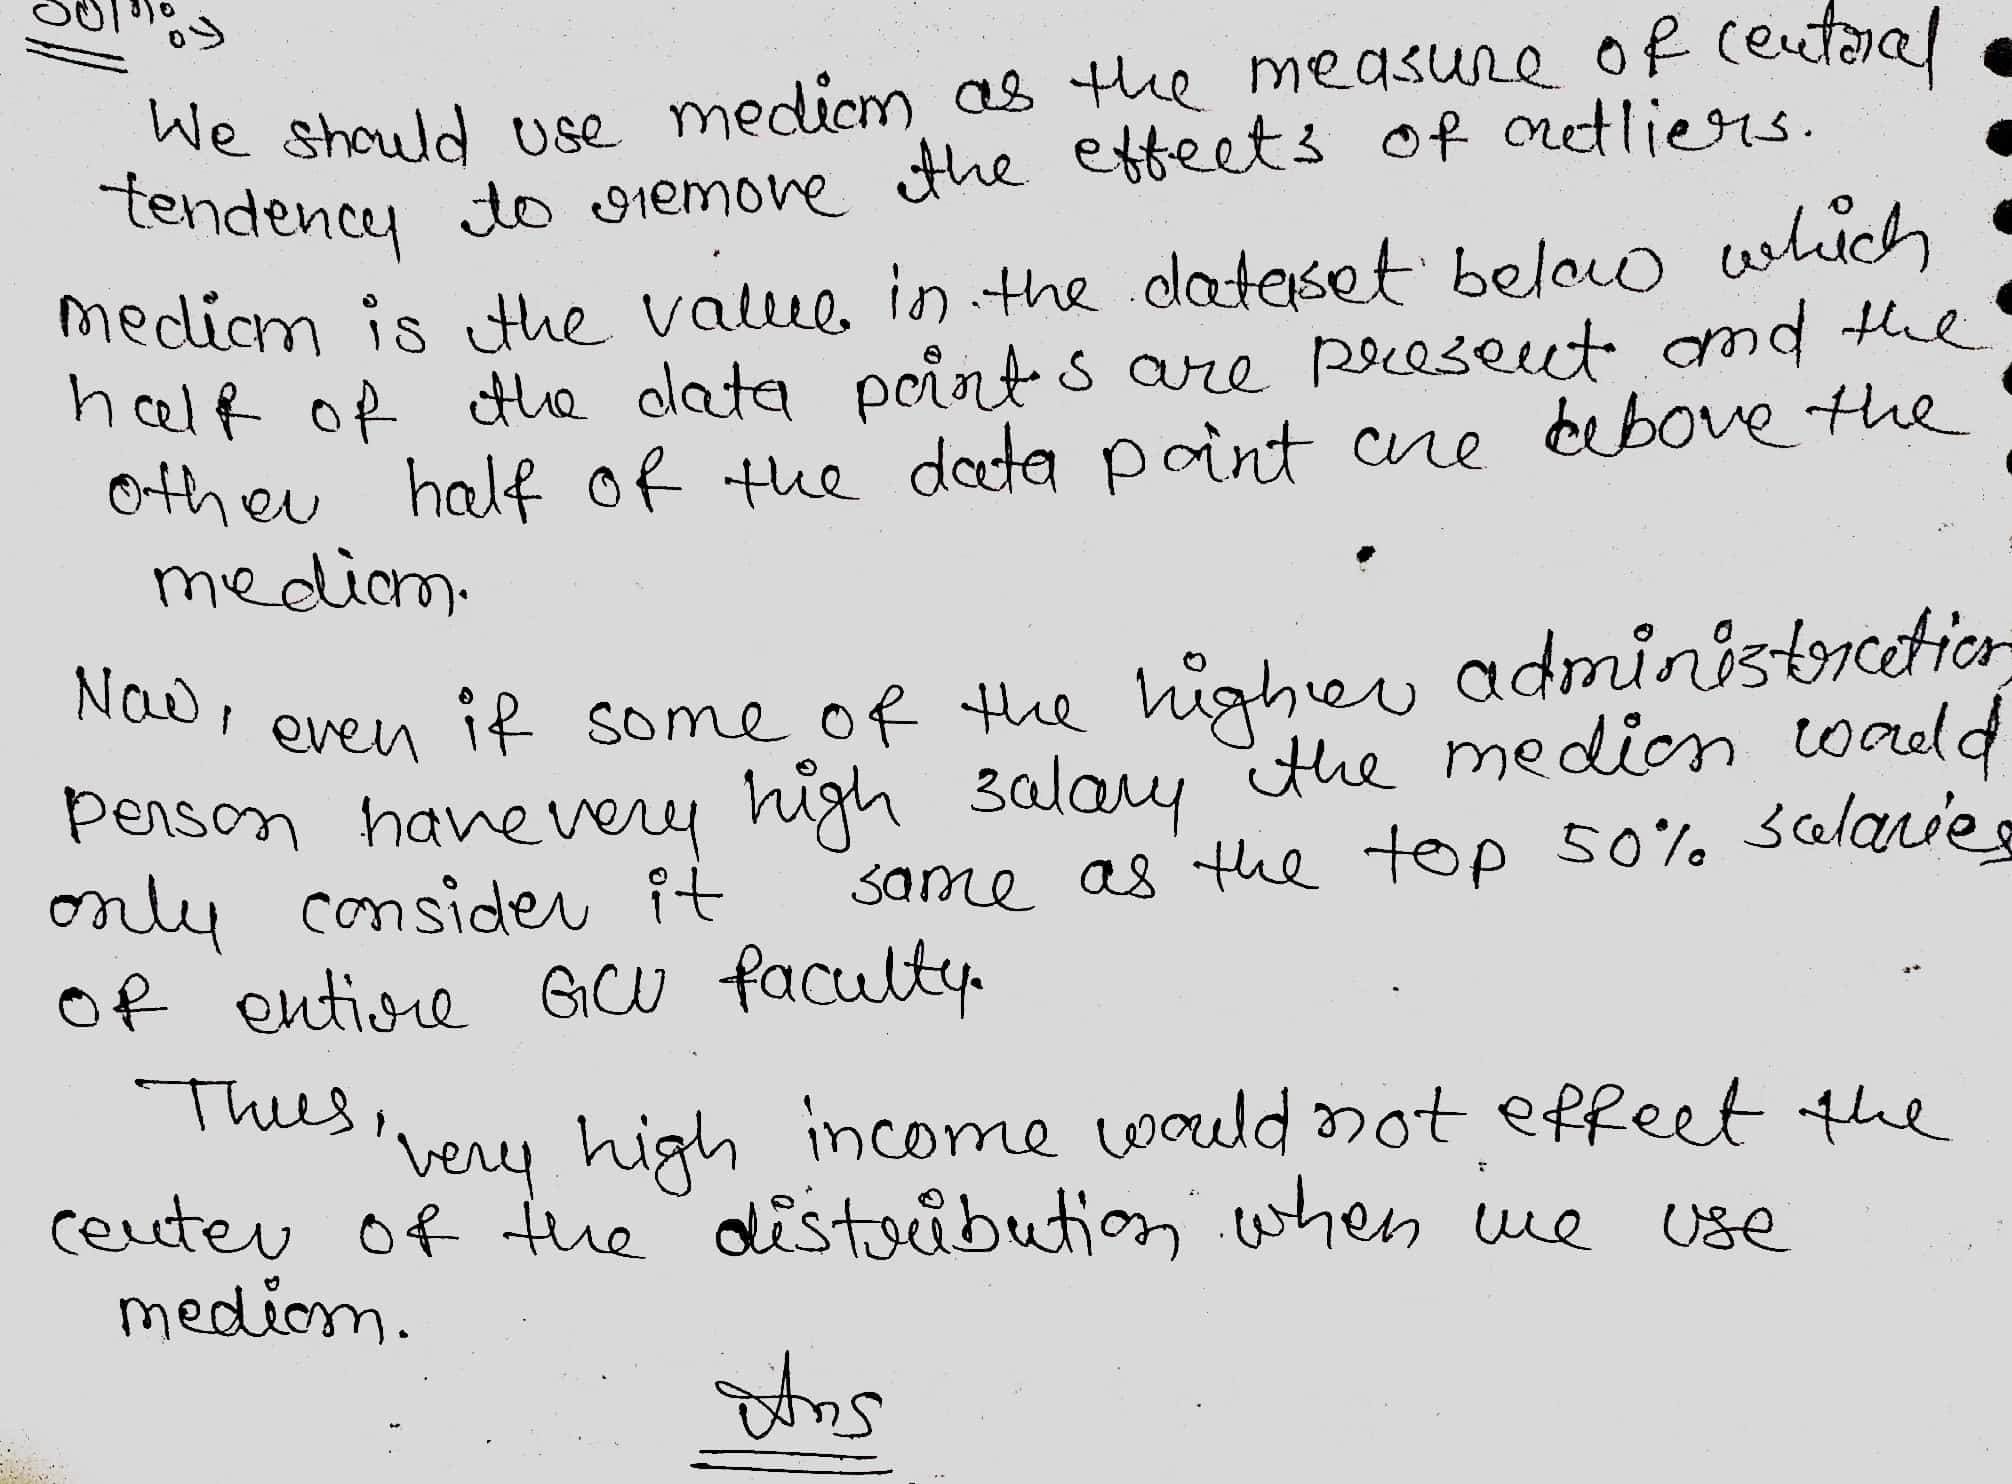 Soln:→
We should use median as the measure of central
tendency to remove the effects of outliers.
median is the value in the dataset below which
half of the data points are present and the
other half of the data point are above the
median.
Now, even if some of the higher administration
person have very high salary the median would
only consider it same as the top 50% salaries
of entire GCU faculty.
Thus, very high income would not effect the
center of the distribution when we use
median.
Ans